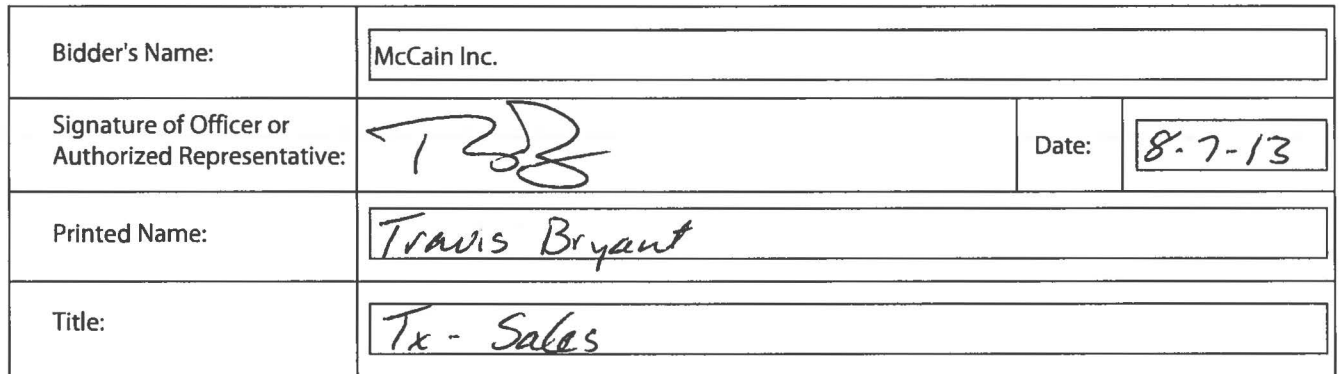 Bidder's Name: McCain Inc.
Signature of Officer or
Authorized Representative:
Date: 8-7-13
Printed Name: Travis Bryant
Title: Tx - Sales